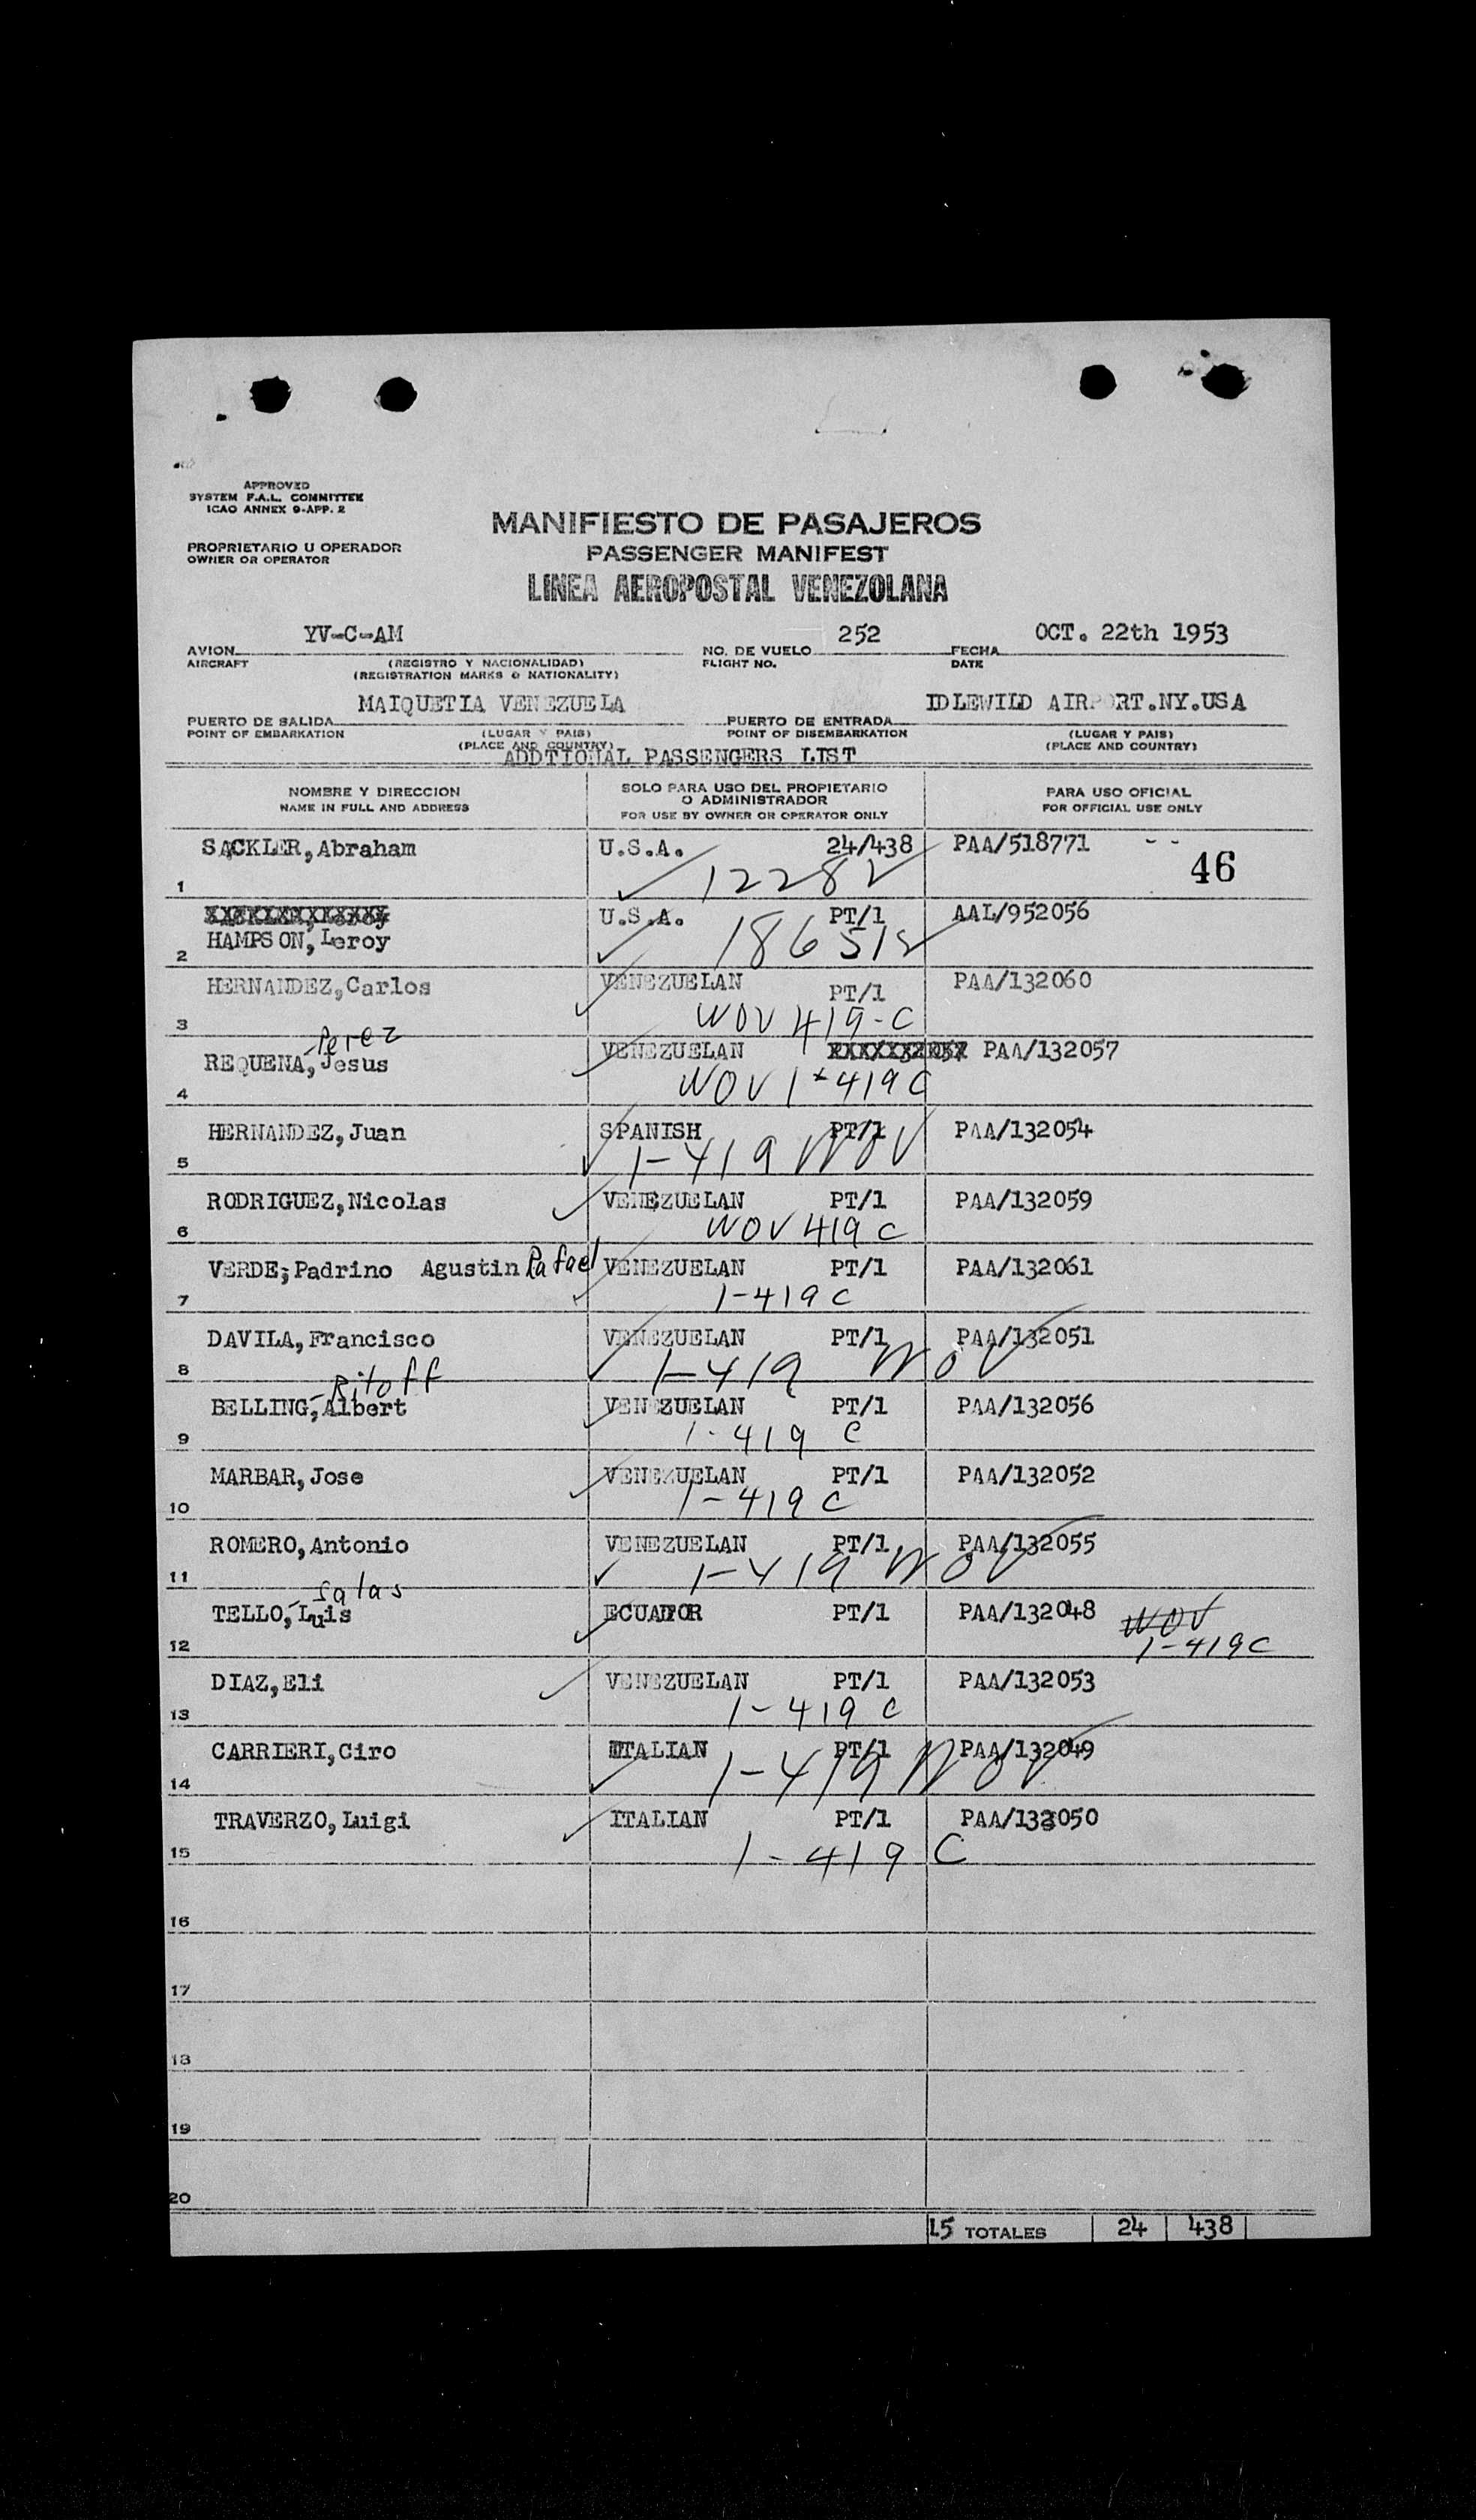 APPROVED
SYSTEM F.A.L. COMMITTEE
ICAO ANNEX 9-APP. 2
MANIFIESTO DE PASAJEROS
PROPRIETARIO U OPERADOR
OWNER OR OPERATOR
PASSENGER MANIFEST
LINEA AEROPOSTAL VENEZOLANA
AVION YV-C-AM NO. DE VUELO 252 FECHA OCT. 22th 1953
AIRCRAFT (REGISTRO Y NACIONALIDAD) FLIGHT NO. DATE
(REGISTRATION MARKS & NATIONALITY)
PUERTO DE SALIDA MAIQUETIA VENEZUELA PUERTO DE ENTRADA IDLEWILD AIRPORT.NY.USA
POINT OF EMBARKATION (LUGAR Y PAIS) POINT OF DISEMBARKATION (LUGAR Y PAIS)
(PLACE AND COUNTRY) (PLACE AND COUNTRY)
ADDTIONAL PASSENGERS LIST
NOMBRE Y DIRECCION SOLO PARA USO DEL PROPIETARIO PARA USO OFICIAL
NAME IN FULL AND ADDRESS O ADMINISTRADOR FOR OFFICIAL USE ONLY
FOR USE BY OWNER OR OPERATOR ONLY
SACKLER, Abraham U.S.A. 24/438 PAA/518771
1 12282 46
U.S.A. PT/1 AAL/952056
2 HAMPSON, Leroy 18651
HERNANDEZ, Carlos VENEZUELAN PT/1 PAA/132060
3 WOV 419-C
-Perez
REQUENA, Jesus VENEZUELAN PAA/132057
4 WOV 1-419 C
HERNANDEZ, Juan SPANISH PT/1 PAA/132054
5 1-419 WOV
RODRIGUEZ, Nicolas VENEZUELAN PT/1 PAA/132059
6 WOV 419 C
VERDE, Padrino Agustin Rafael VENEZUELAN PT/1 PAA/132061
7 1-419 C
DAVILA, Francisco VENEZUELAN PT/1 PAA/132051
8 1-419 WOV
-Ritoff
BELLING, Albert VENEZUELAN PT/1 PAA/132056
9 1-419 C
MARBAR, Jose VENEZUELAN PT/1 PAA/132052
10 1-419 C
ROMERO, Antonio VENEZUELAN PT/1 PAA/132055
11 1-419 WOV
-Salas
TELLO, Luis ECUADOR PT/1 PAA/132048 WOV
12 1-419 C
DIAZ, Eli VENEZUELAN PT/1 PAA/132053
13 1-419 C
CARRIERI, Ciro ITALIAN PT/1 PAA/132049
14 1-419 WOV
TRAVERZO, Luigi ITALIAN PT/1 PAA/132050
15 1-419 C
16
17
18
19
20
15 TOTALES 24 438